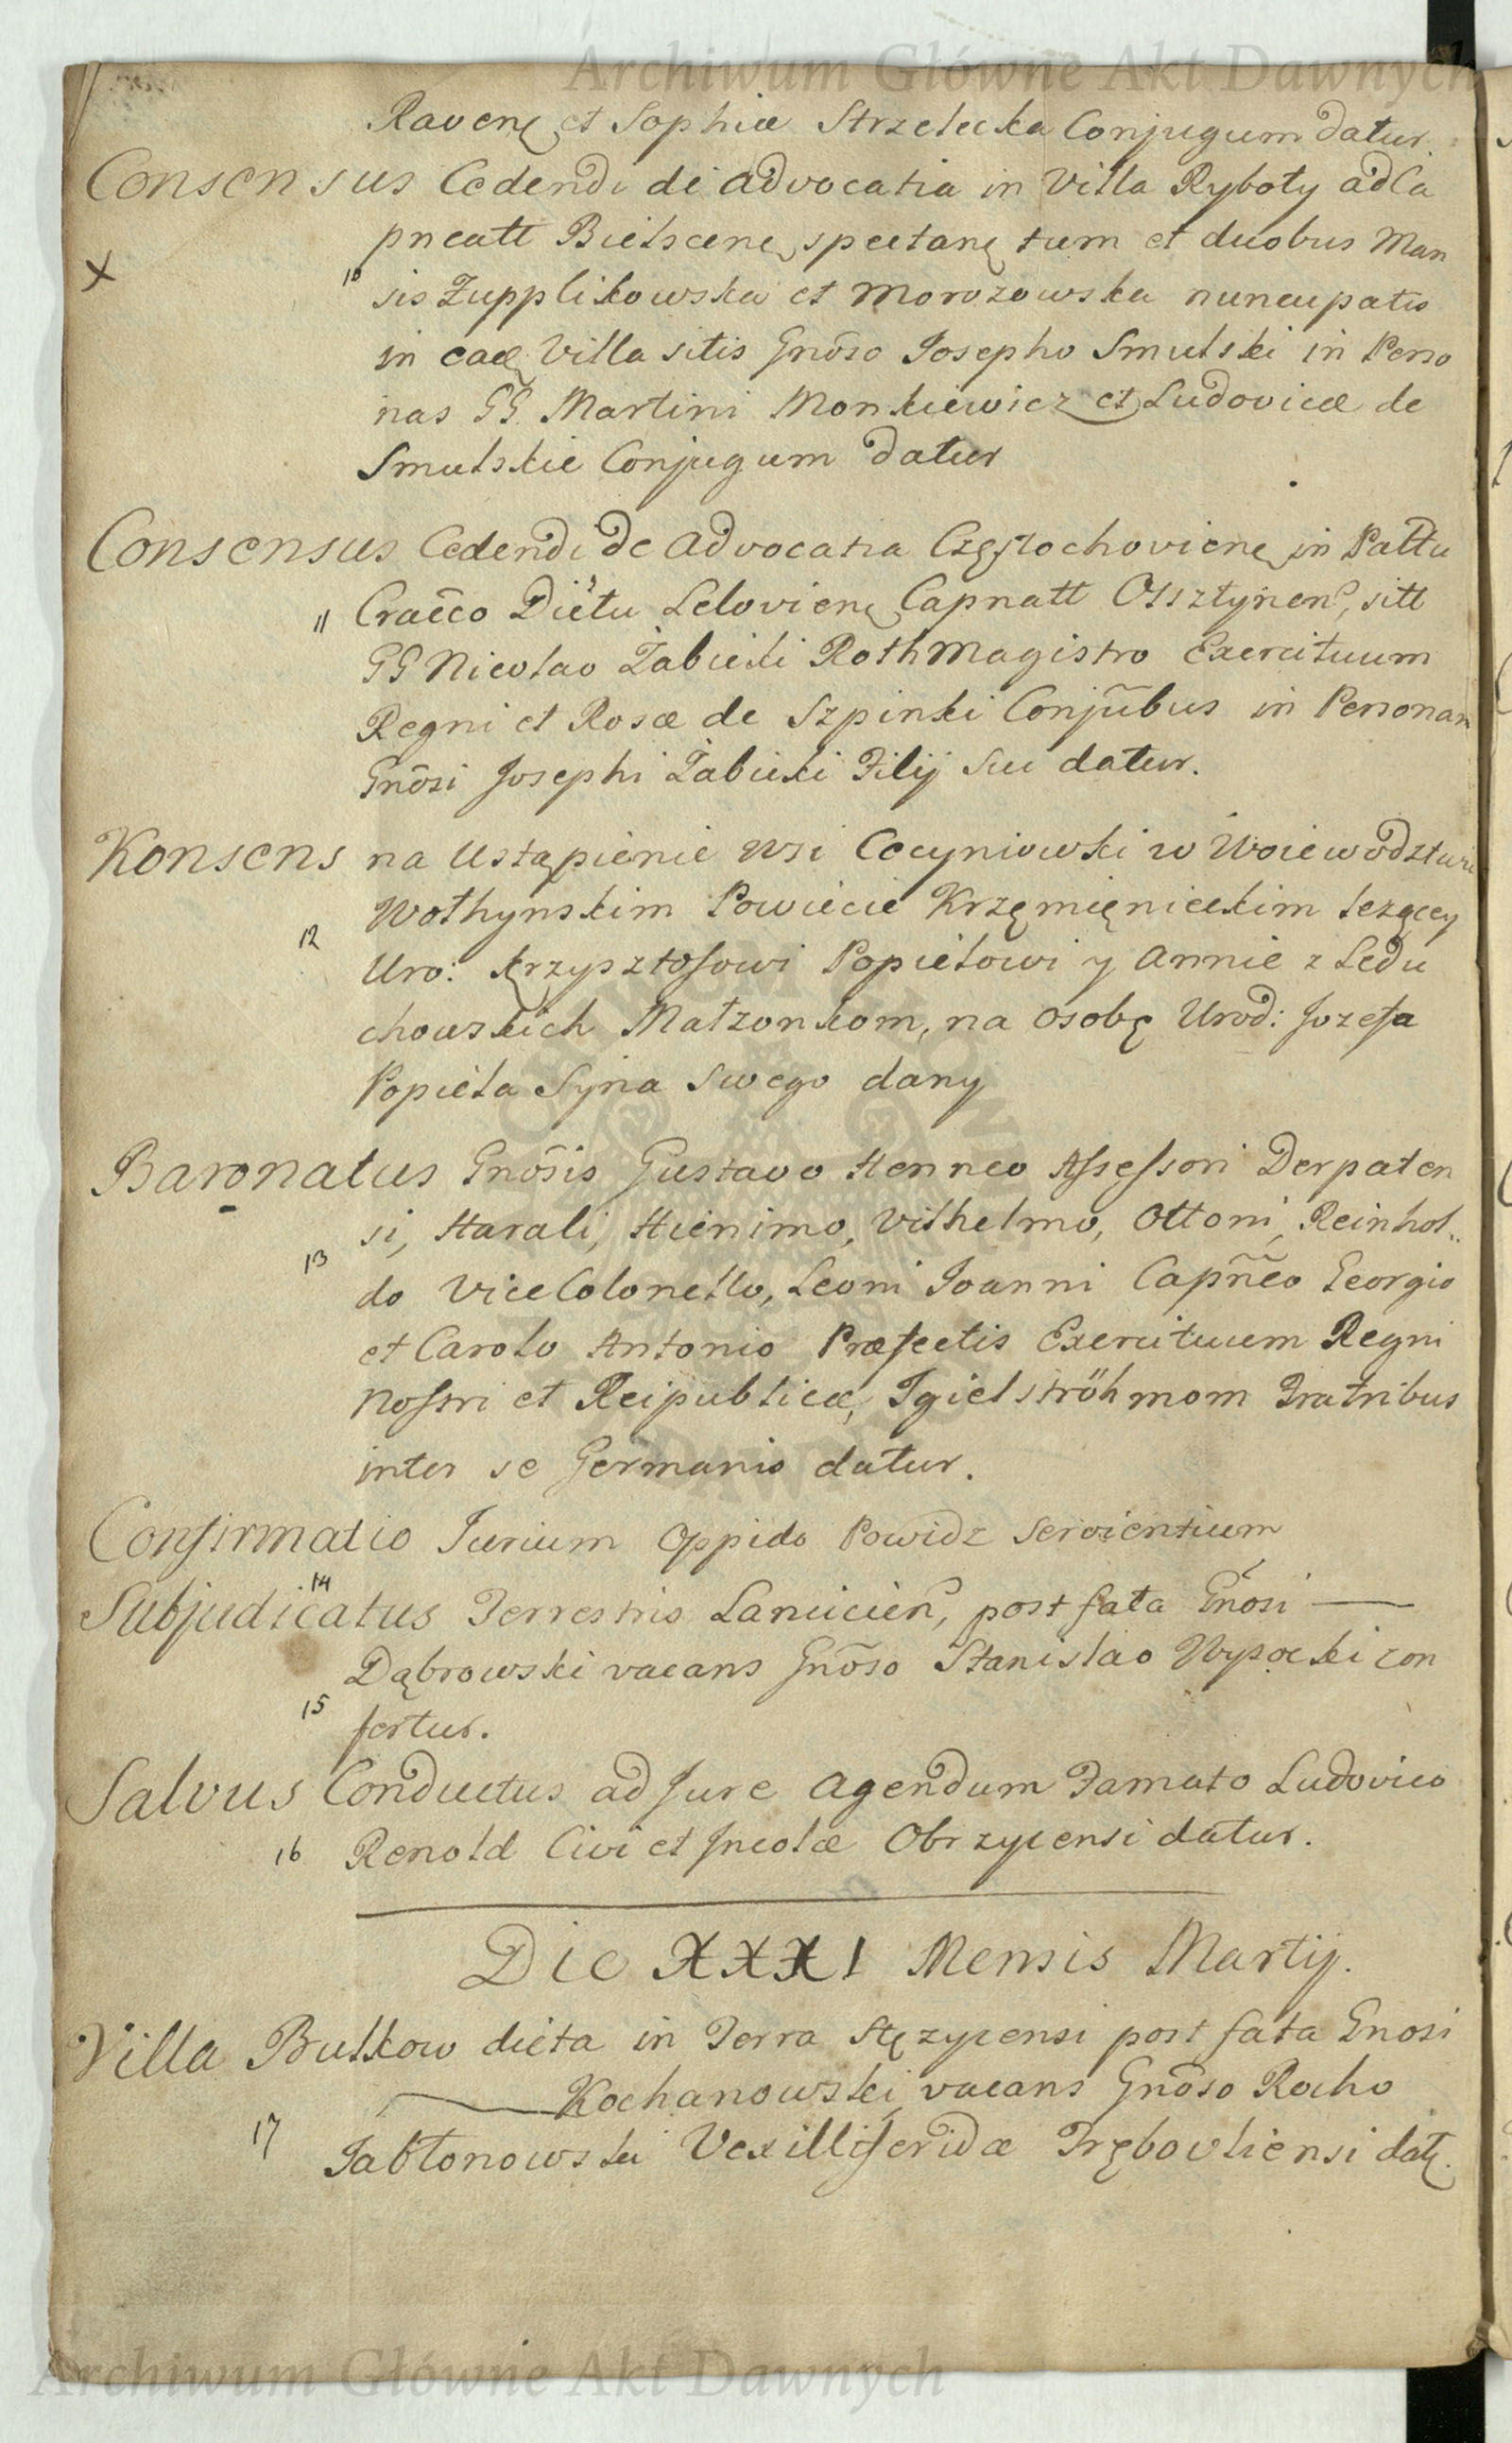 Archiwum Główne Akt Dawnych
Ravenę et Sophiæ Strzelecka Conjugum datur.
Consensus Cedendi de advocatia in Villa Ryboły ad Ca
pneatt Bielscenę spectanę tum et duobus Man
10 sis Zupplikowska et Morozowska nuncupatis
in eadę Villa sitis Gnõso Josepho Smulski in Perso
nas GG. Martini Monkiewicz et Ludovicæ de
Smulskie Conjugum datur
Consensus Cedendi de advocatia Częstochovienę in Pałtu
11 Cracco Dictu Lelovienę Capnatt Olsztynen, sitt
GG Nicolao Żabicki Rothmagistro Exercituum
Regni et Rosæ de Szpinki Conjũbus in Personam
Gnõsi Josephi Żabicki Filij sui datur.
Konsens na Ustąpienie wsi Cecyniowski w Woiewodztwie
Wołhynskim Powiecie Krzęmięnieckim leżącey
12 Uro: Krzysztofowi Popiełowi y Annie z Ledu
chowskich Małżonkom, na osobę Urod: Jozefa
Popiela Syna swego dany
Baronatus Gnõsis Gustavo Henrico Assessori Derpaten
si, Harali, Hienimo, Vilhelmo, Ottoni, Reinhol..
13 do Vice Colonello, Leoni Joanni Capñeo Georgio
et Carolo Antonio Præfectis Exercituum Regni
Nostri et Reipublicæ, Igielströhmom Fratribus
inter se Germanis datur.
Confirmatio Jurium Oppido Powidz servientium
14
Subjudicatus Terrestris Lanicien, post fata Gñosi —
Dąbrowski vacans Gnõso Stanislao Wysocki con
15 fertur.
Salvus Conductus ad Jure agendum Famato Ludovico
16 Renold Civi et Incolæ Obrzycensi datur.
Die XXXI Mensis Martij.
Villa Bułkow dicta in Terra Stęzycensi post fata Gnosi
— Kochanowski vacans Gnõso Rocho
17 Jabłonowski Vexilliferidæ Trębovliensi datę.
Archiwum Główne Akt Dawnych